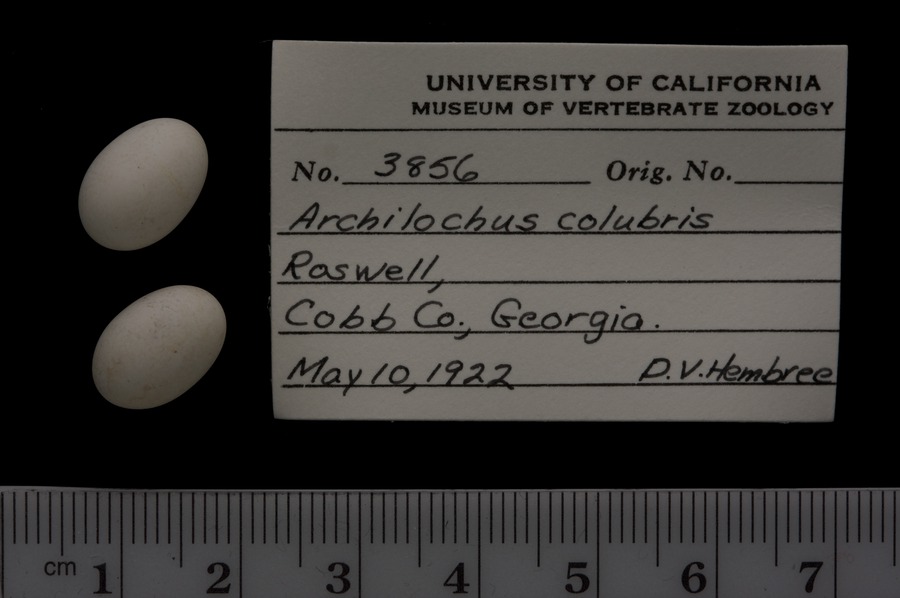 UNIVERSITY OF CALIFORNIA
MUSEUM OF VERTEBRATE ZOOLOGY
No. 3856 Orig. No.
Archilochus colubris
Roswell,
Cobb Co., Georgia.
May 10, 1922 D.V. Hembree
cm 1 2 3 4 5 6 7